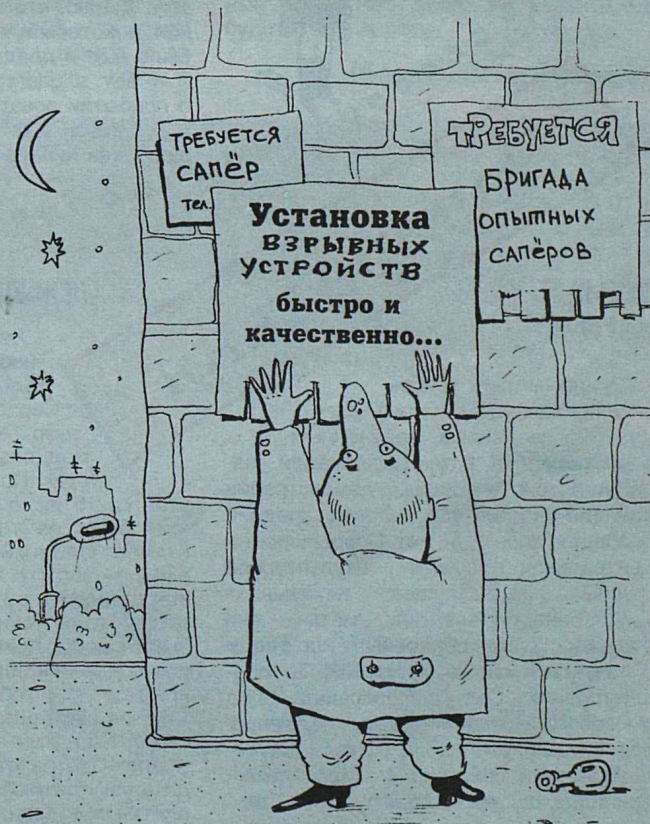 ТРЕБУЕТСЯ
САПЁР
тел.
ТРЕБУЕТСЯ
БРИГАДА
опытных
сапёров
Установка
взрывных
устройств
быстро и
качественно...